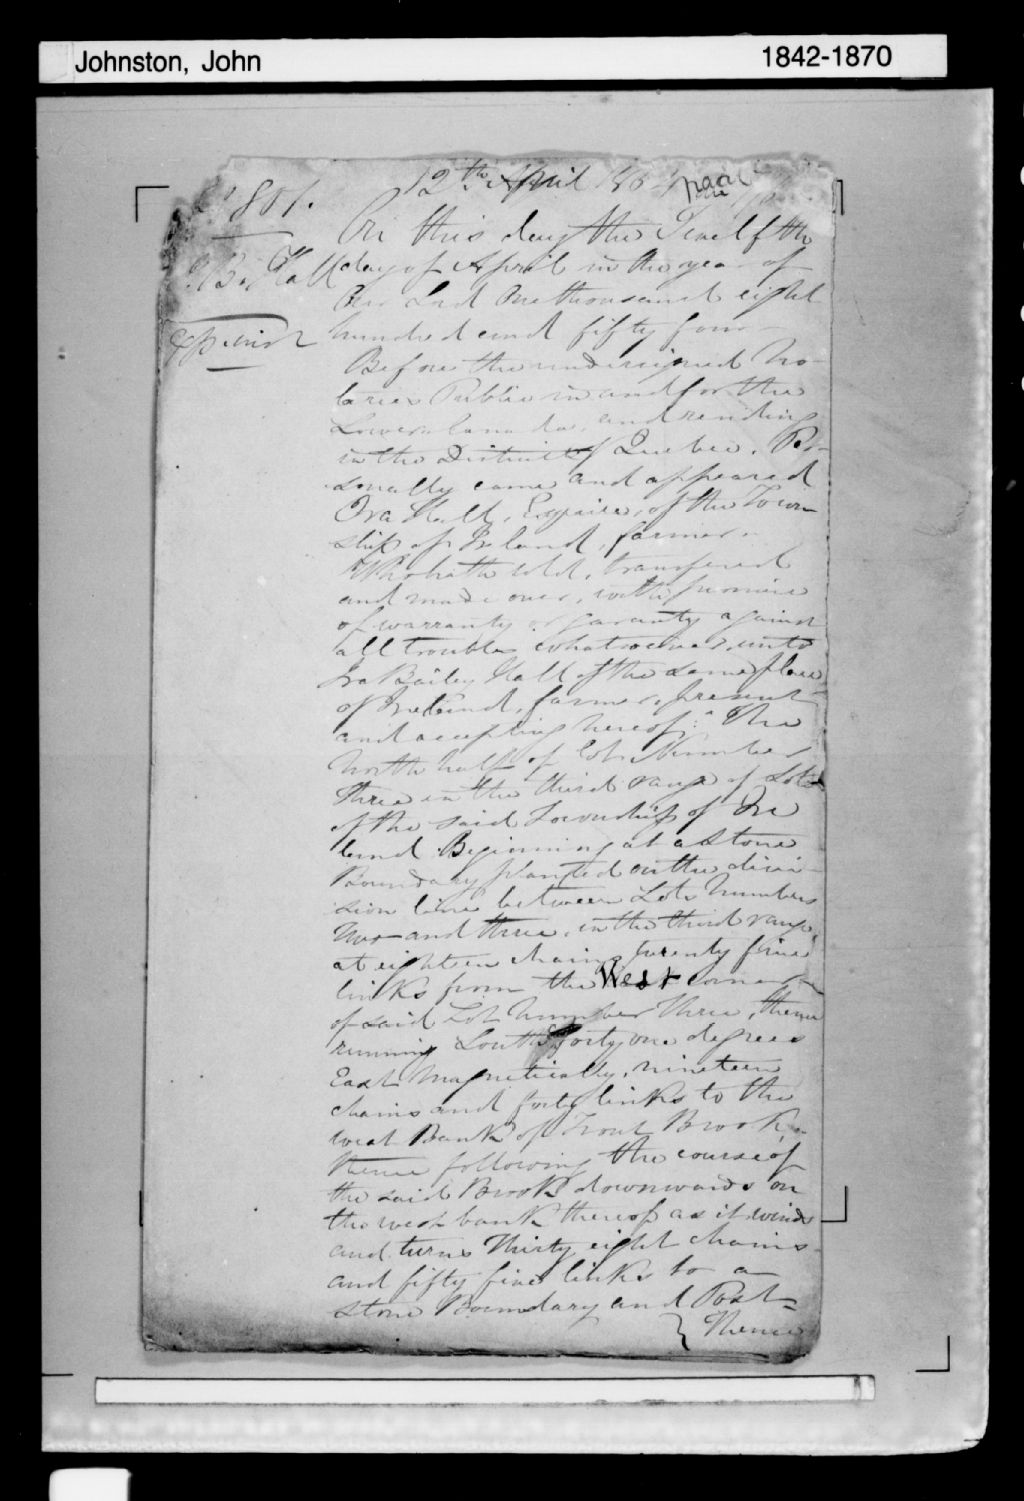 Johnston, John 1842-1870
12th April
801.
On this day the Twelfth
B. Hall
day of April in the year of
Our Lord One thousand eight
hundred and fifty four
Before the undersigned No-
taries Public in and for the
Lower Canada, and residing
in the District of Quebec, Per-
sonally came and appeared
Ira Hall, Esquire, of the Town
ship of Ireland, farmer
Who hath sold, transfered
and made over, with promise
of warranty or garanty against
all troubles whatsoever, unto
Ira Bailey Hall of the same place
of Ireland, farmer, present
and accepting hereof: The
North half of Lot Number
Three in the third range of Lots
of the said Township of Ire
land Beginning at a Stone
Boundary planted on the divi-
sion line between Lots Numbers
Two and three, in the third range,
at eighteen chains twenty five
links from the West corner
of said Lot Number Three, thence
running South forty one degrees
East Magnetically, nineteen
chains and forty links to the
west Bank of Trout Brook,
thence following the course of
the said Brook downwards on
the west bank thereof as it winds
and turns Thirty eight chains
and fifty five links to a
Stone Boundary and Post
Thence